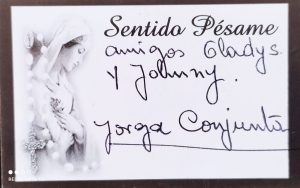 Sentido Pésame
amigos Gladys
y Johnny.
Jorga Conjunta